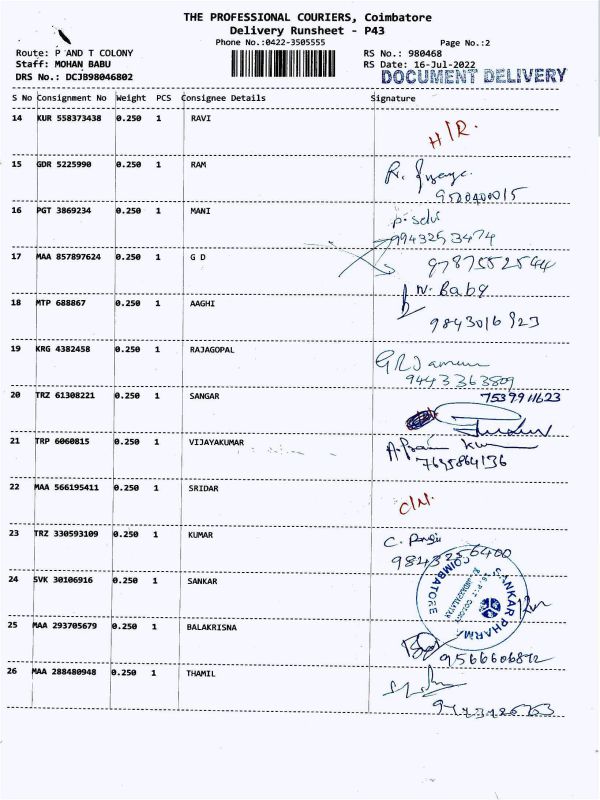 THE PROFESSIONAL COURIERS, Coimbatore
Delivery Runsheet - P43
Phone No.:0422-3505555
Page No.:2
Route: P AND T COLONY
RS No.: 980468
Staff: MOHAN BABU
RS Date: 16-Jul-2022
DRS No.: DCJB98046802
DOCUMENT DELIVERY
S No Consignment No Weight PCS Consignee Details Signature
14 KUR 558373438 0.250 1 RAVI
H/R.
15 GDR 5225990 0.250 1 RAM
R.
9500400015
16 PGT 3869234 0.250 1 MANI
P. Selvi
9943253474
17 MAA 857897624 0.250 1 G D
9787552544
18 MTP 688867 0.250 1 AAGHI
N. Baby
9843016923
19 KRG 4382458 0.250 1 RAJAGOPAL
9443363809
20 TRZ 61308221 0.250 1 SANGAR
7539911623
21 TRP 6060815 0.250 1 VIJAYAKUMAR
7695864136
22 MAA 566195411 0.250 1 SRIDAR
C/N.
23 TRZ 330593109 0.250 1 KUMAR
9843256400
24 SVK 30106916 0.250 1 SANKAR
COIMBATORE
25 MAA 293705679 0.250 1 BALAKRISNA
9566606892
26 MAA 288480948 0.250 1 THAMIL